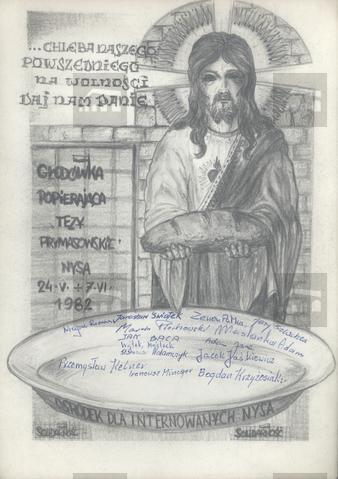 ...CHLEBA NASZEGO
POWSZEDNIEGO
NA WOLNOŚCI
DAJ NAM PANIE...
GŁODÓWKA
POPIERAJĄCA
"TEZY
PRYMASOWSKIE"
NYSA
24·V·÷7·VI·
1982
Jarosław Świątek Zenon Pałka Jerzy
Marek Adam
JAN BACA
Wojtek
Adamczyk Jacek Jaśkiewicz
Przemysław Ireneusz Bogdan Krzyżosiak
OŚRODEK DLA INTERNOWANYCH NYSA
SOLIDARNOŚĆ SOLIDARNOŚĆ